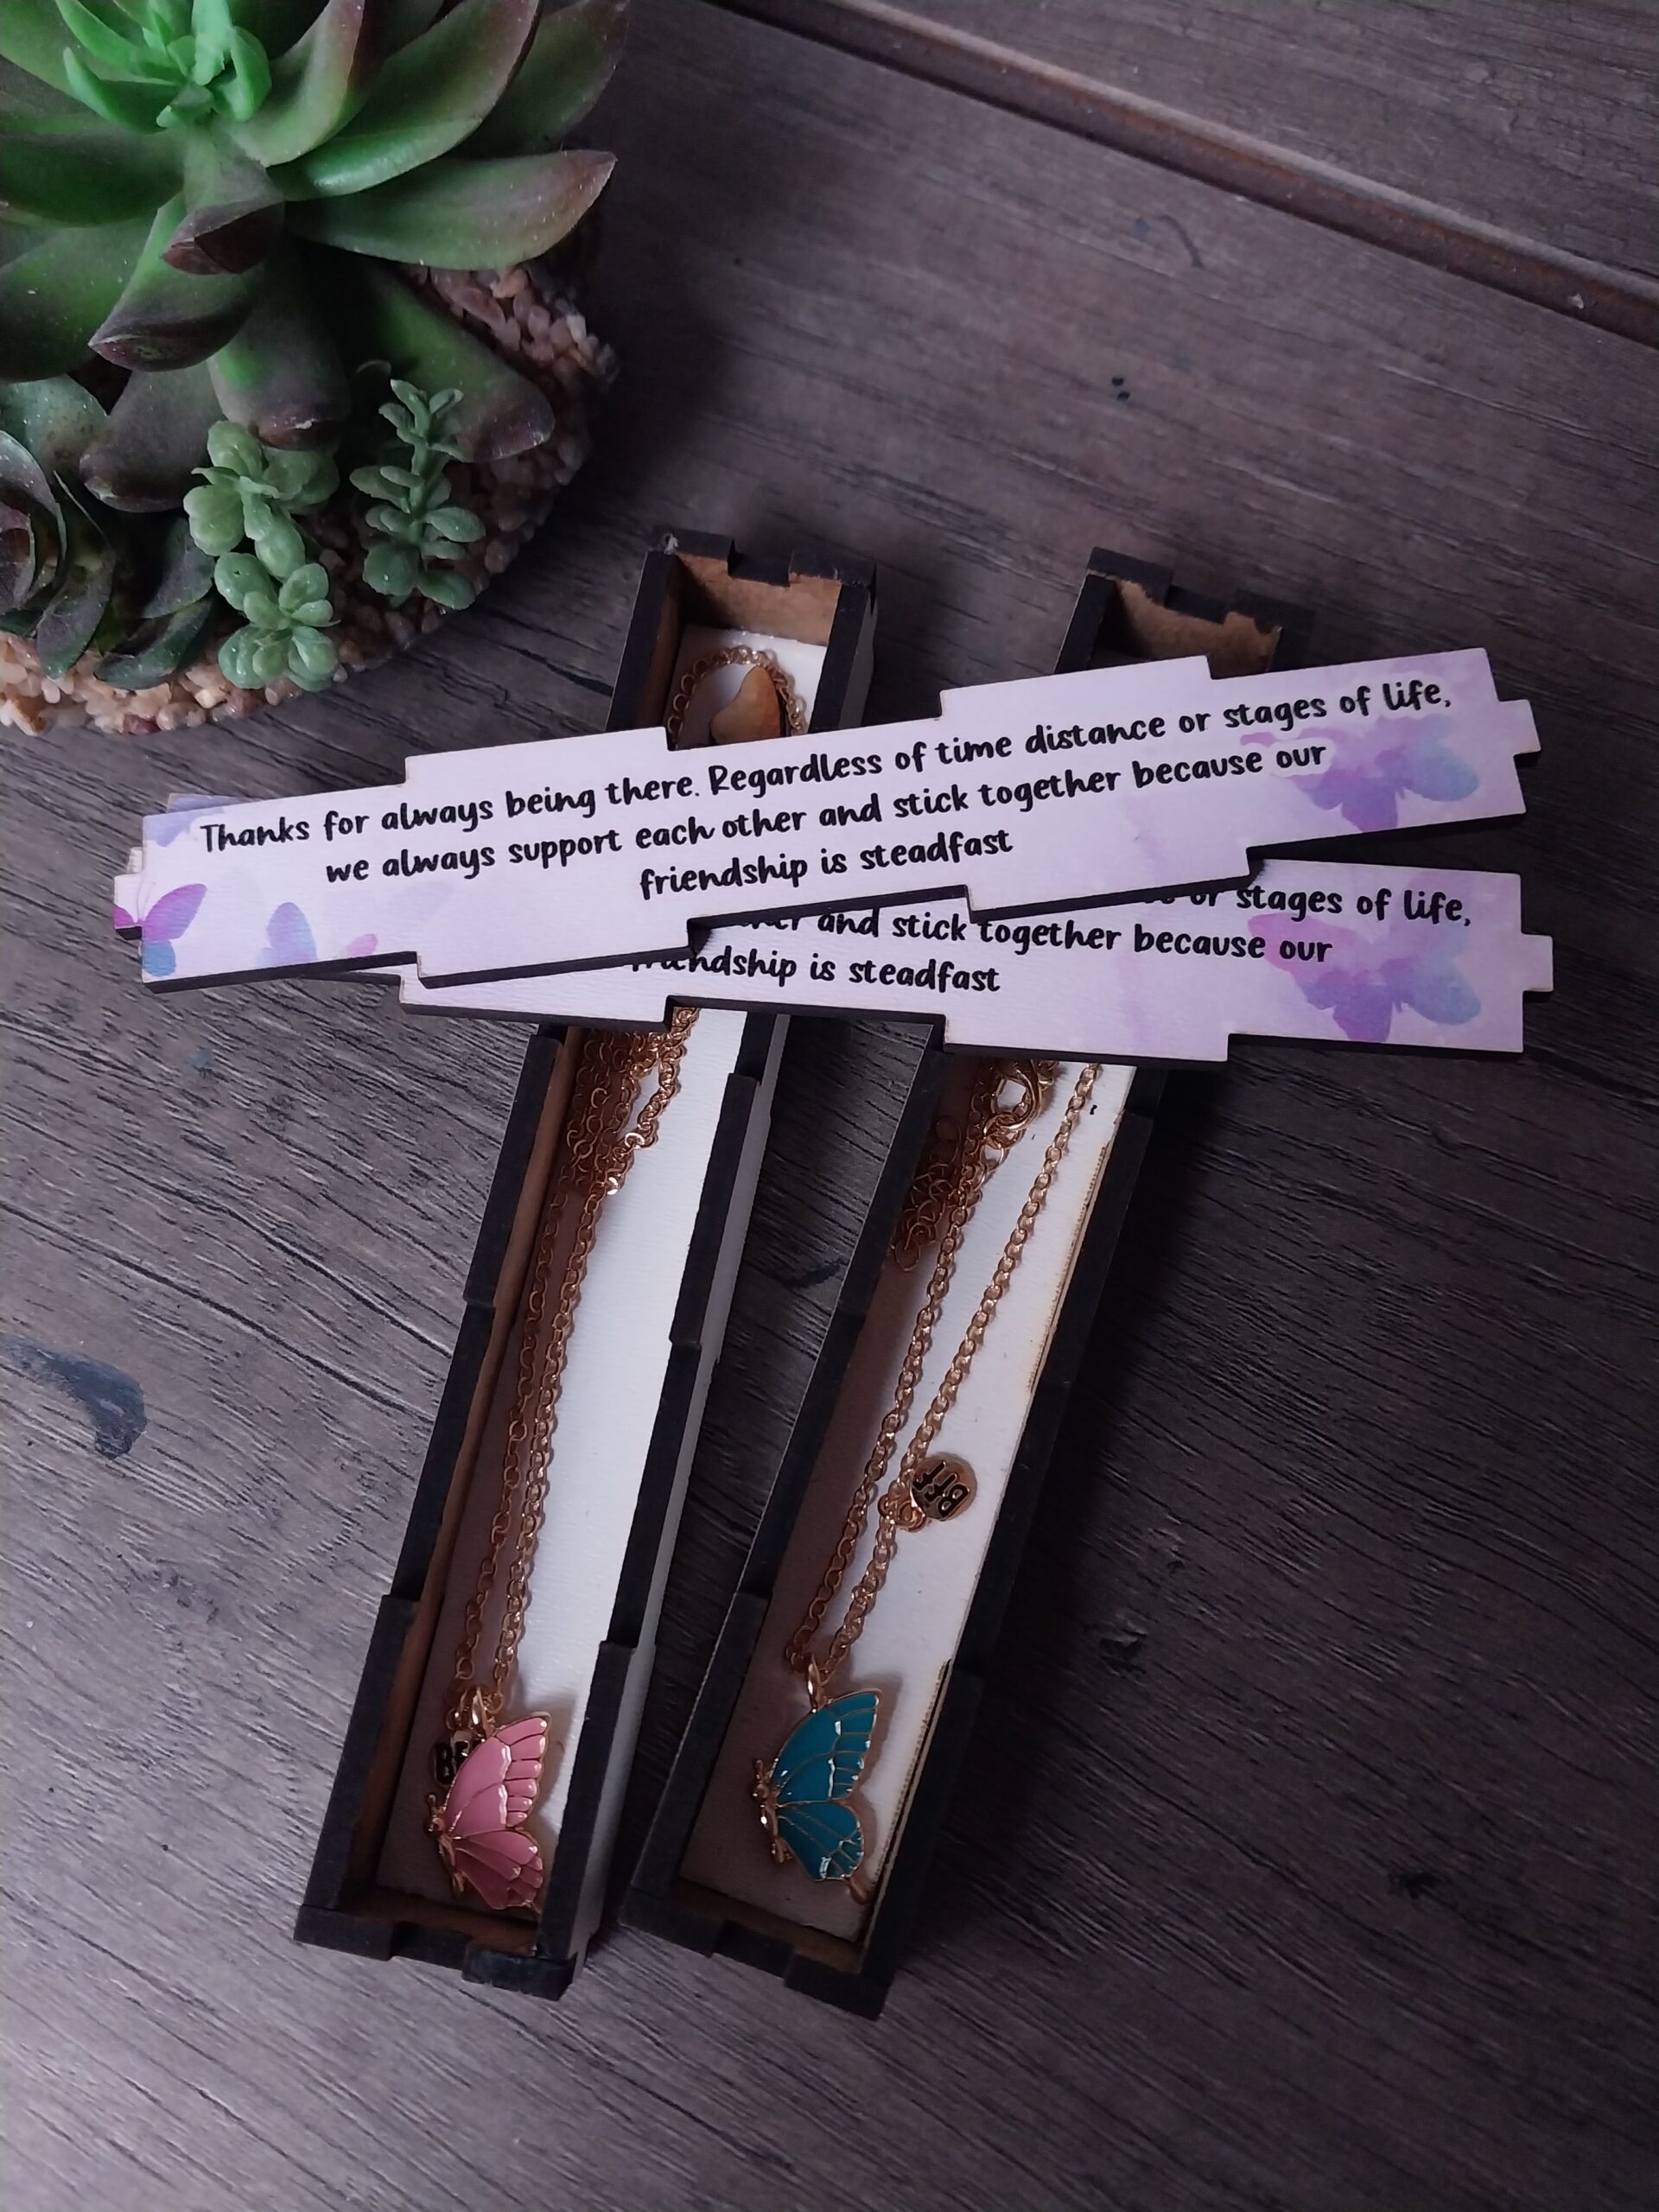 Thanks for always being there. Regardless of time distance or stages of life,
we always support each other and stick together because our
friendship is steadfast
or stages of life,
and stick together because our
friendship is steadfast
BFF